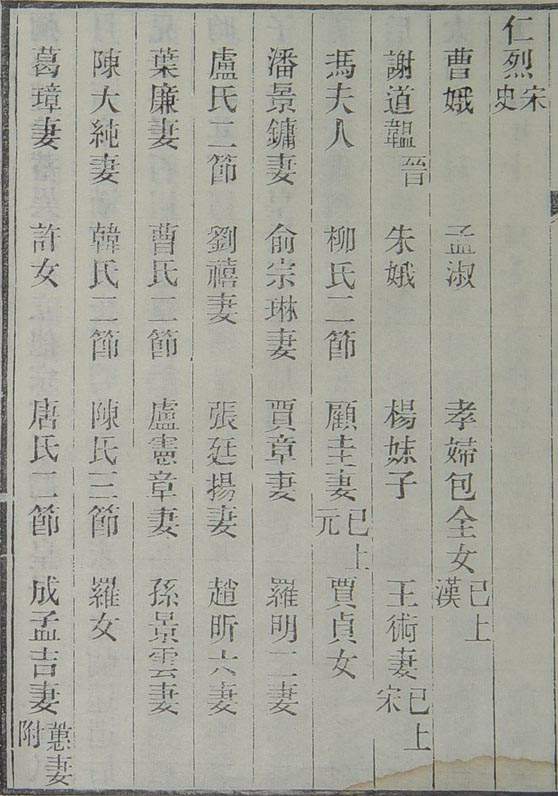 仁烈宋史
曹娥 孟淑 孝婦包全女已上漢
謝道韞晉 朱娥 楊妹子 王術妻已上宋
馮夫人 柳氏二節 顧圭妻已上元 賈貞女
潘景鏞妻 俞宗琳妻 賈章妻 羅明二妻
盧氏二節 劉禧妻 張廷揚妻 趙昕六妻
葉廉妻 曹氏二節 盧憲章妻 孫景雲妻
陳大純妻 韓氏二節 陳氏三節 羅女
葛璋妻 許女 唐氏二節 成孟吉妻蕙妻附